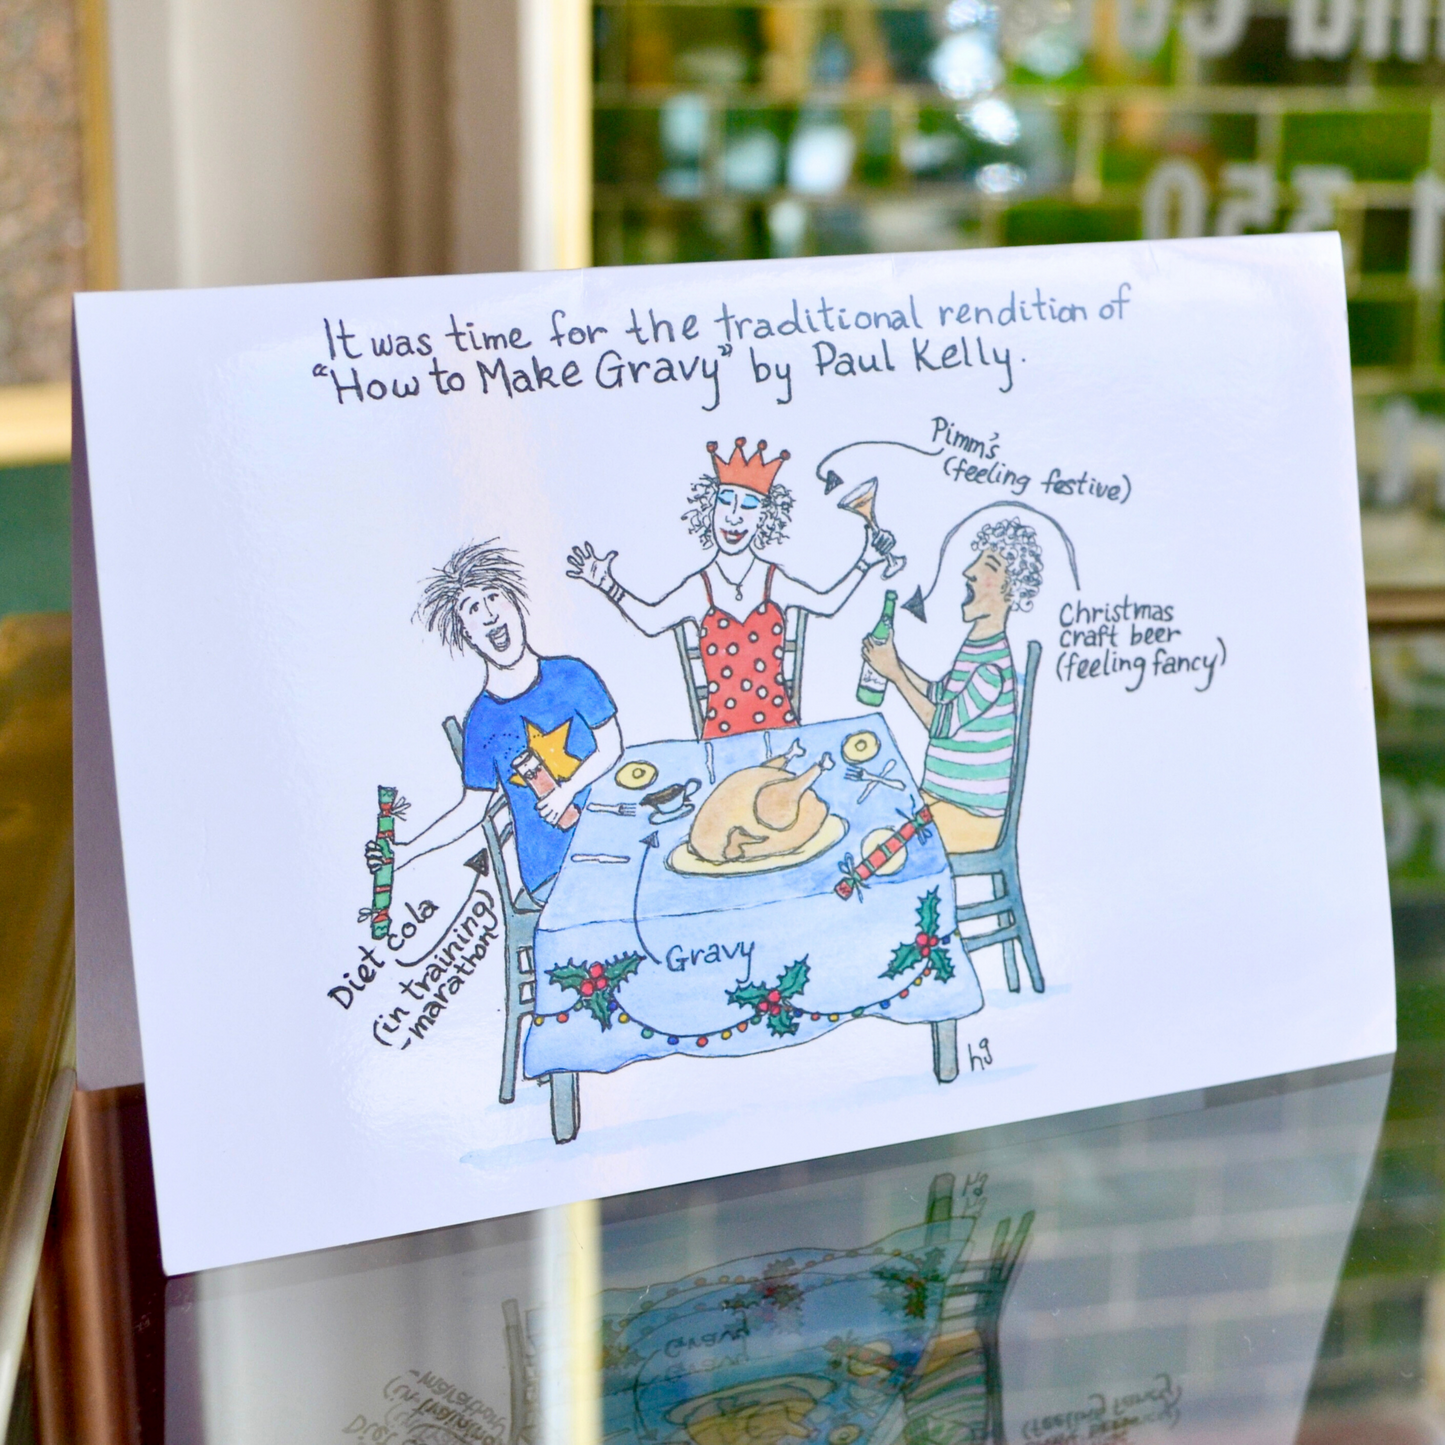 It was time for the traditional rendition of
"How to Make Gravy" by Paul Kelly.
Pimm's
(feeling festive)
Christmas
craft beer
(feeling fancy)
Diet Cola
(in training
-marathon)
Gravy
hg
350